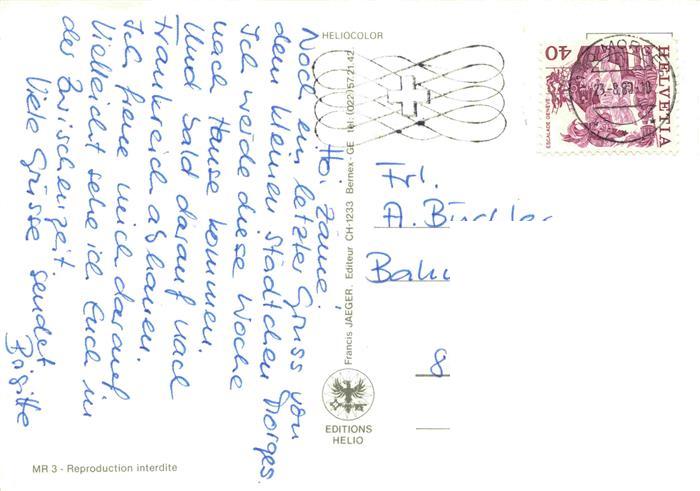 Hoi Zäme,
Noch ein letzter Gruss von
dem kleinen Städtchen Morges.
Ich werde diese Woche
nach Hause kommen.
Und bald darauf nach
Frankreich abhauen.
Ich freue mich darauf
Vielleicht sehe ich Euch in
der Zwischenzeit.
Viele Grüsse sendet
Brigitte
MR 3 - Reproduction interdite
HELIOCOLOR
Francis JAEGER, Editeur CH-1233 Bernex-GE Tel. (022) 57 21 42
EDITIONS
HELIO
HELVETIA
40
ESCALADE GENÈVE
23-8.80-10
Frl.
A.
Bah
8